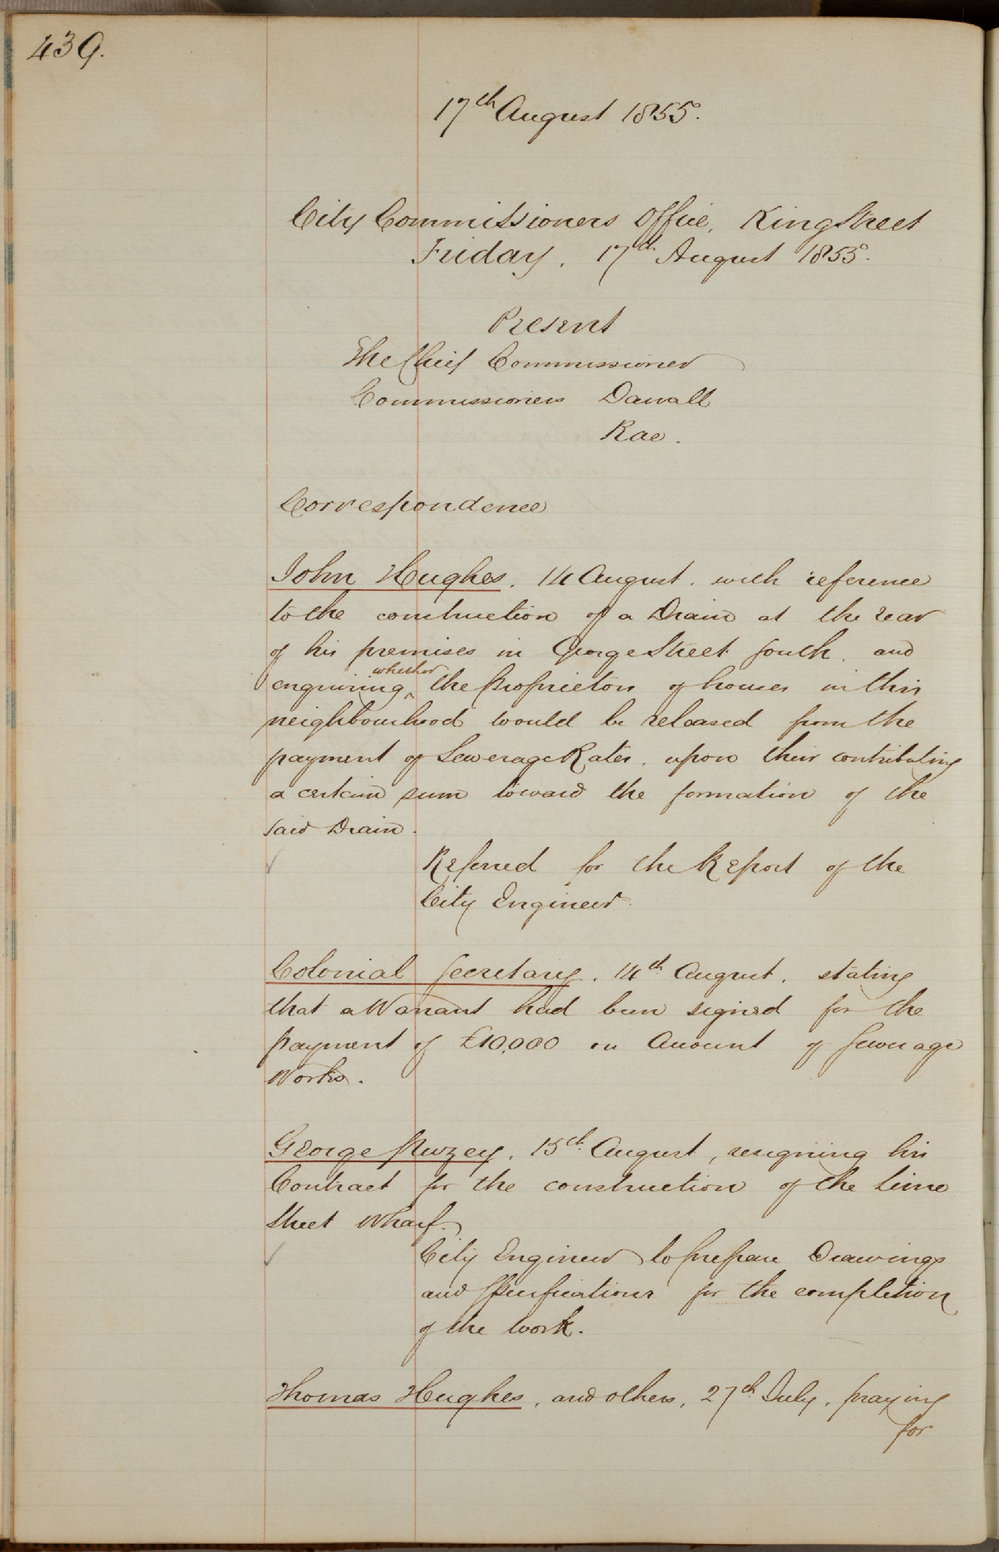 439.
17th August 1855.
City Commissioners Office, King Street
Friday, 17th August 1855.
Present
The Chief Commissioner
Commissioners Darvall
Rae.
Correspondence
John Hughes, 14 August, with reference
to the construction of a Drain at the rear
of his premises in George Street South, and
whether
enquiring the Proprietors of houses in this
neighbourhood would be released from the
payment of Sewerage Rates, upon their contributing
a certain sum toward the formation of the
said Drain.
Referred for the Report of the
City Engineer.
Colonial Secretary, 14th August, stating
that a Warrant had been signed for the
payment of £10,000 on Account of Sewerage
Works.
George 15th August, resigning his
Contract for the construction of the Lime
Street Wharf.
City Engineer to prepare Drawings
and Specifications for the completion
of the work.
Thomas Hughes, and others, 27th July, praying
for